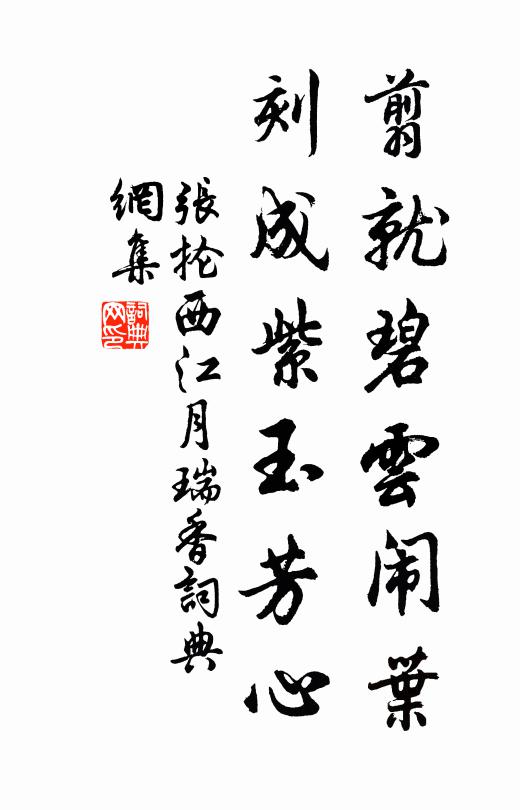 翦就碧雲闹葉
刻成紫玉芳心
張抡西江月瑞香詞典
網集
詞典網印